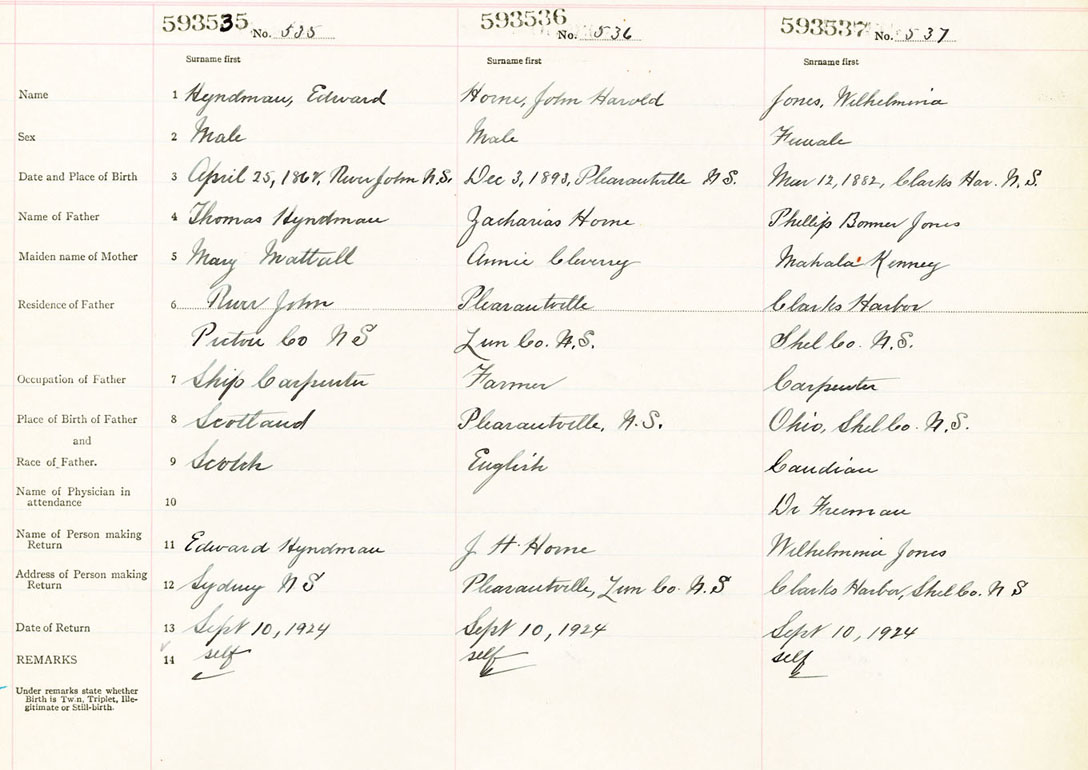 593535 No. 535 593536 No. 536 593537 No. 537
Surname first Surname first Surname first
Name 1 Hyndman, Edward Horne, John Harold Jones, Wilhelminia
Sex 2 Male Male Female
Date and Place of Birth 3 April 25, River John N.S. Dec 3, 1893, Pleasantville N.S. Mar 12, 1882, Clarks Har. N.S.
Name of Father 4 Thomas Hyndman Zacharias Horne Phillip Bonner Jones
Maiden name of Mother 5 Mary Mattall Annie Kenney Mahala Kenney
Residence of Father 6 River John Pleasantville Clarks Harbor
Pictou Co N S Lun Co. N.S. Shel Co. N.S.
Occupation of Father 7 Ship Carpenter Farmer Carpenter
Place of Birth of Father 8 Scotland Pleasantville, N.S. Ohio, Shel Co. N.S.
and
Race of Father. 9 Scotch English Candian
Name of Physician in
attendance 10 Dr Freeman
Name of Person making
Return 11 Edward Hyndman J. H. Horne Wilhelminia Jones
Address of Person making
Return 12 Sydney N S Pleasantville, Lun Co. N.S Clarks Harbor, Shel Co. N S
Date of Return 13 Sept 10, 1924 Sept 10, 1924 Sept 10, 1924
REMARKS 14 self self self
Under remarks state whether
Birth is Twin, Triplet, Ille-
gitimate or Still-birth.